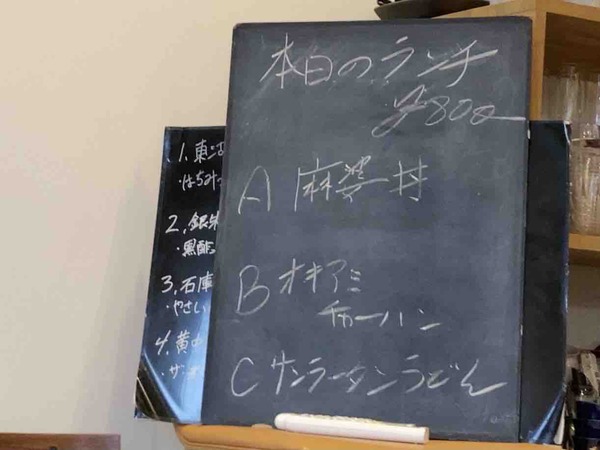 本日のランチ
¥800
A 麻婆丼
B オキアミ
チャーハン
C サンラータンうどん
1. 東
・はちみつ
2. 銀
・黒酢
3. 石庫
・やさい
4. 黄